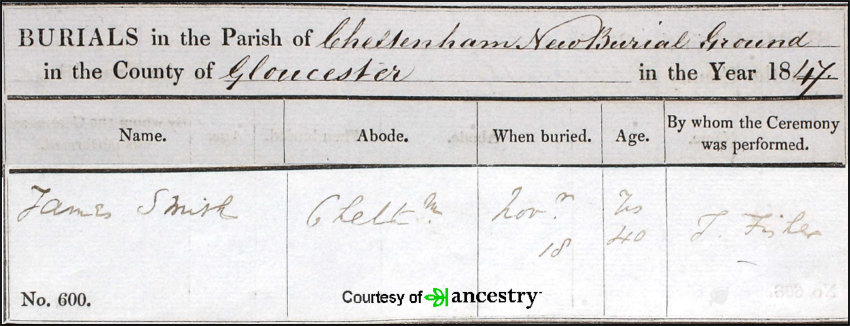 BURIALS in the Parish of Cheltenham New Burial Ground
in the County of Gloucester in the Year 1847.
Name. Abode. When buried. Age. By whom the Ceremony was performed.
James Smith Chelt.m Nov.r 18 Ys 40 J. Fisher
No. 600.
Courtesy of ancestry™